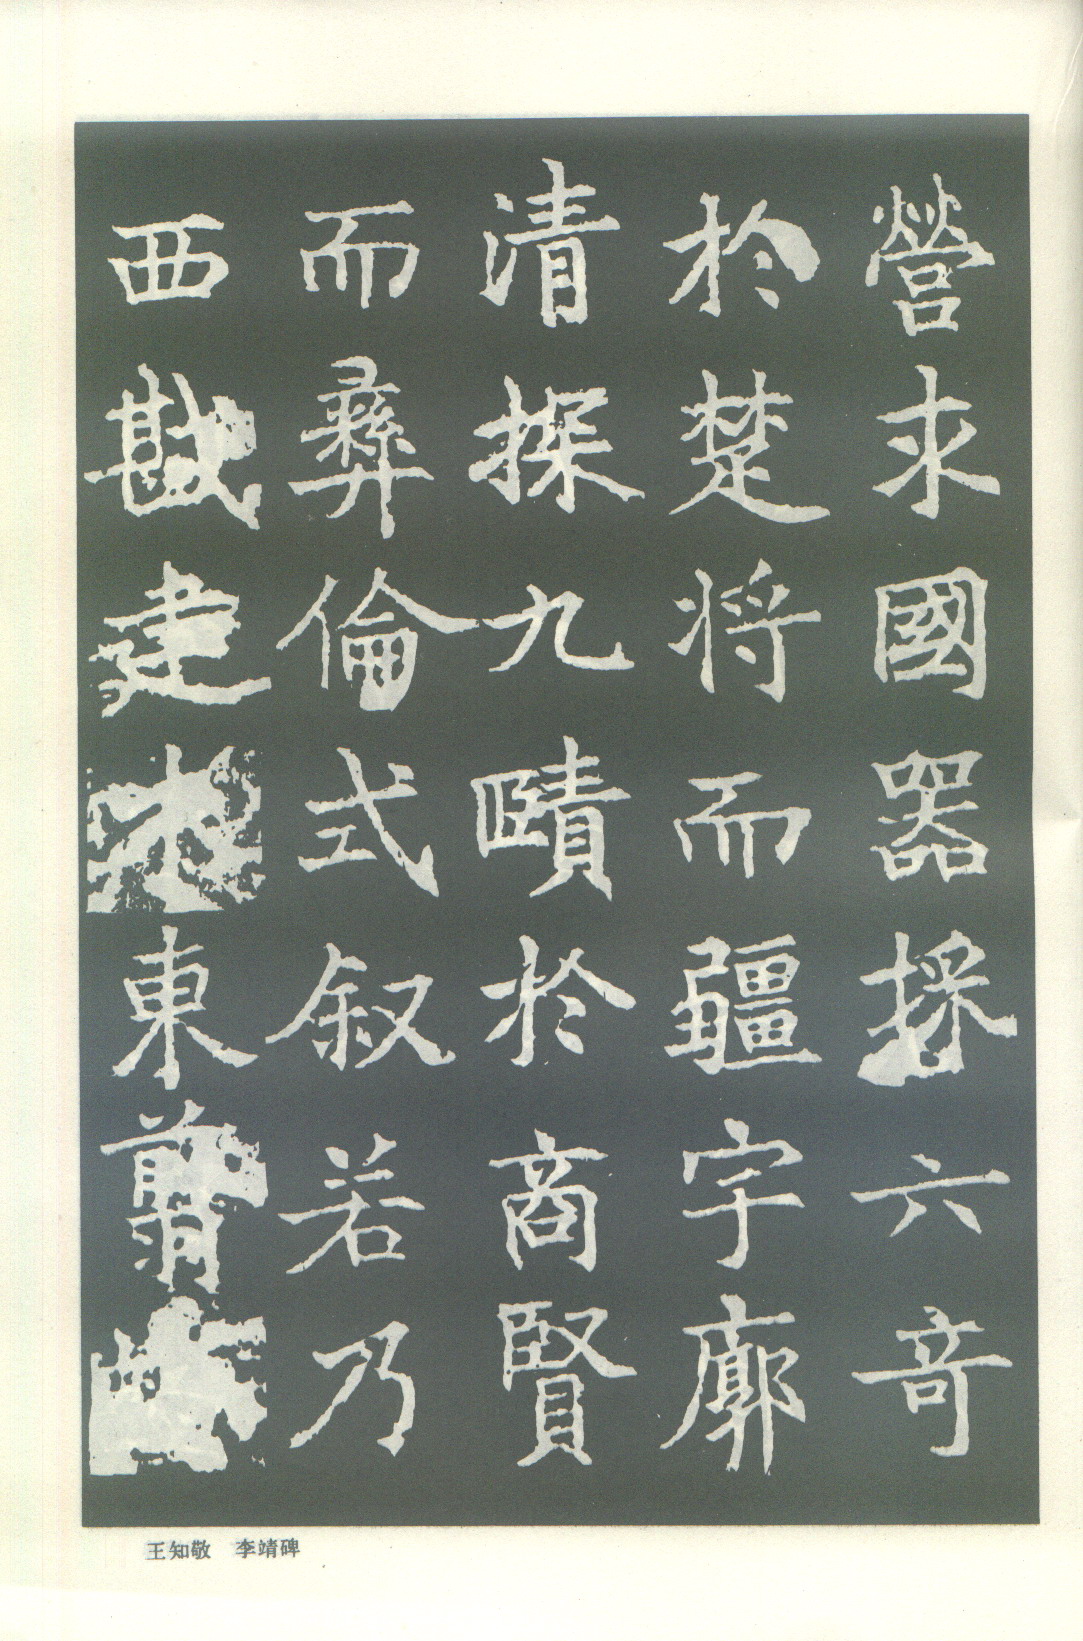 營求國器採六奇
於楚將而疆宇廓
清探九賾於商賢
而彝倫式叙若乃
西戡建木東翦
王知敬 李靖碑